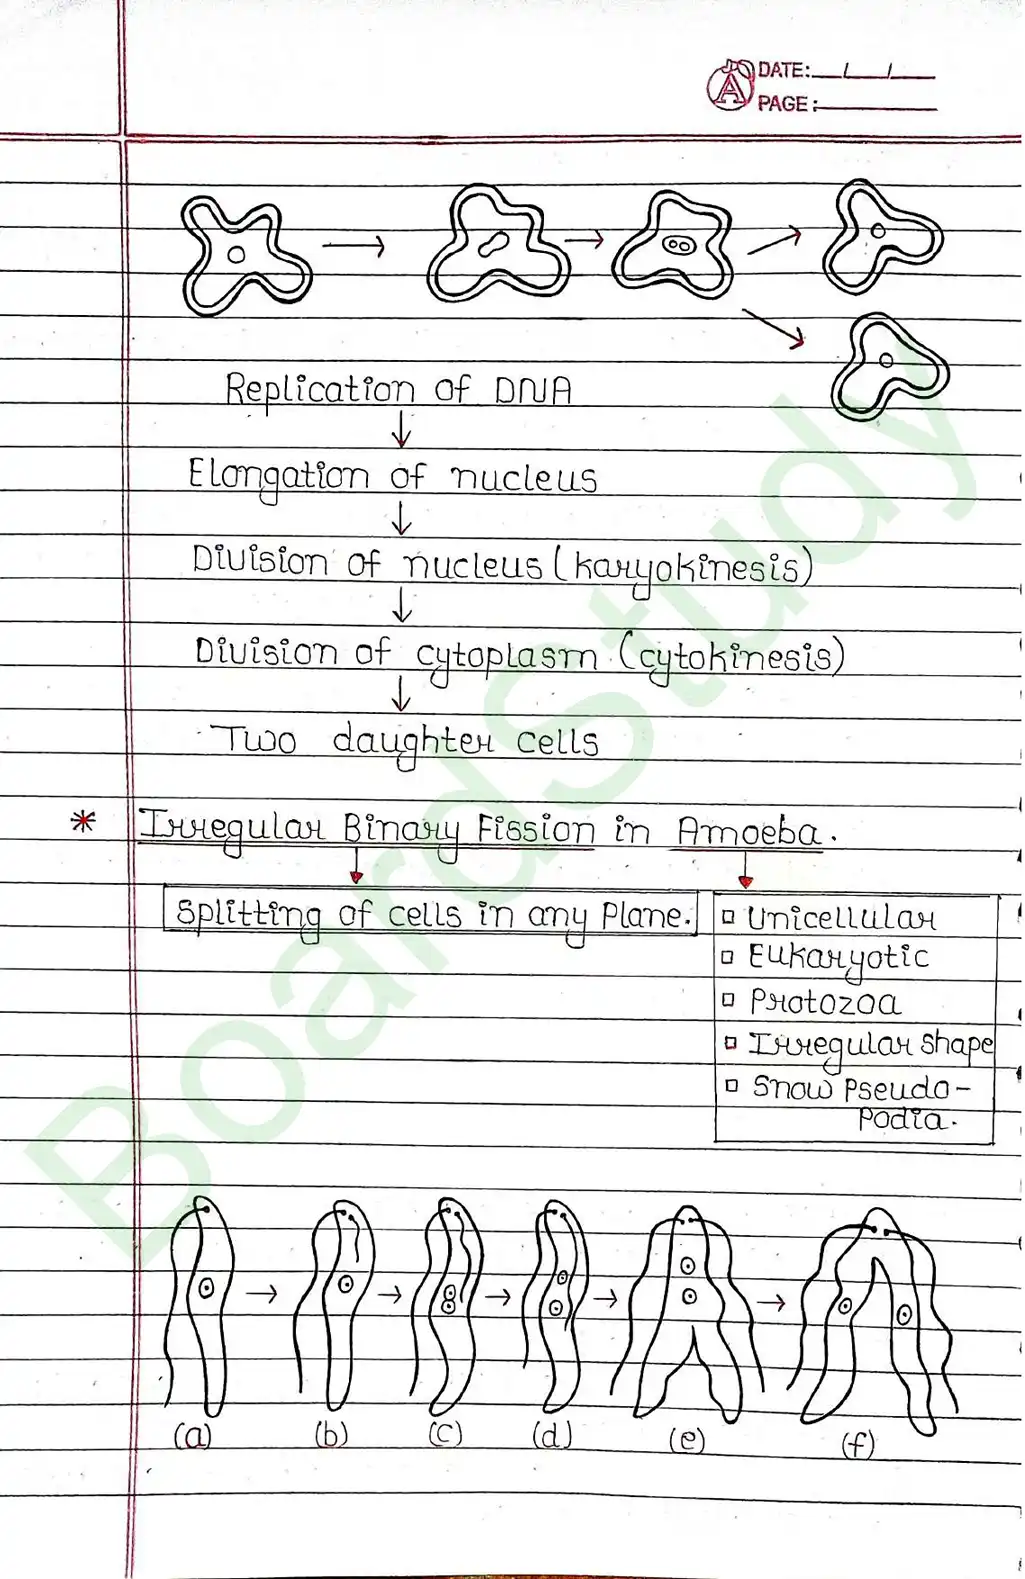 DATE: / /
PAGE:
Replication of DNA
Elongation of nucleus
Division of nucleus (karyokinesis)
Division of cytoplasm (cytokinesis)
Two daughter cells
* Irregular Binary Fission in Amoeba.
Splitting of cells in any Plane.
Unicellular
Eukaryotic
Protozoa
Irregular shape
Snow Pseudo-
Podia.
(a) (b) (c) (d) (e) (f)
BoardStudy